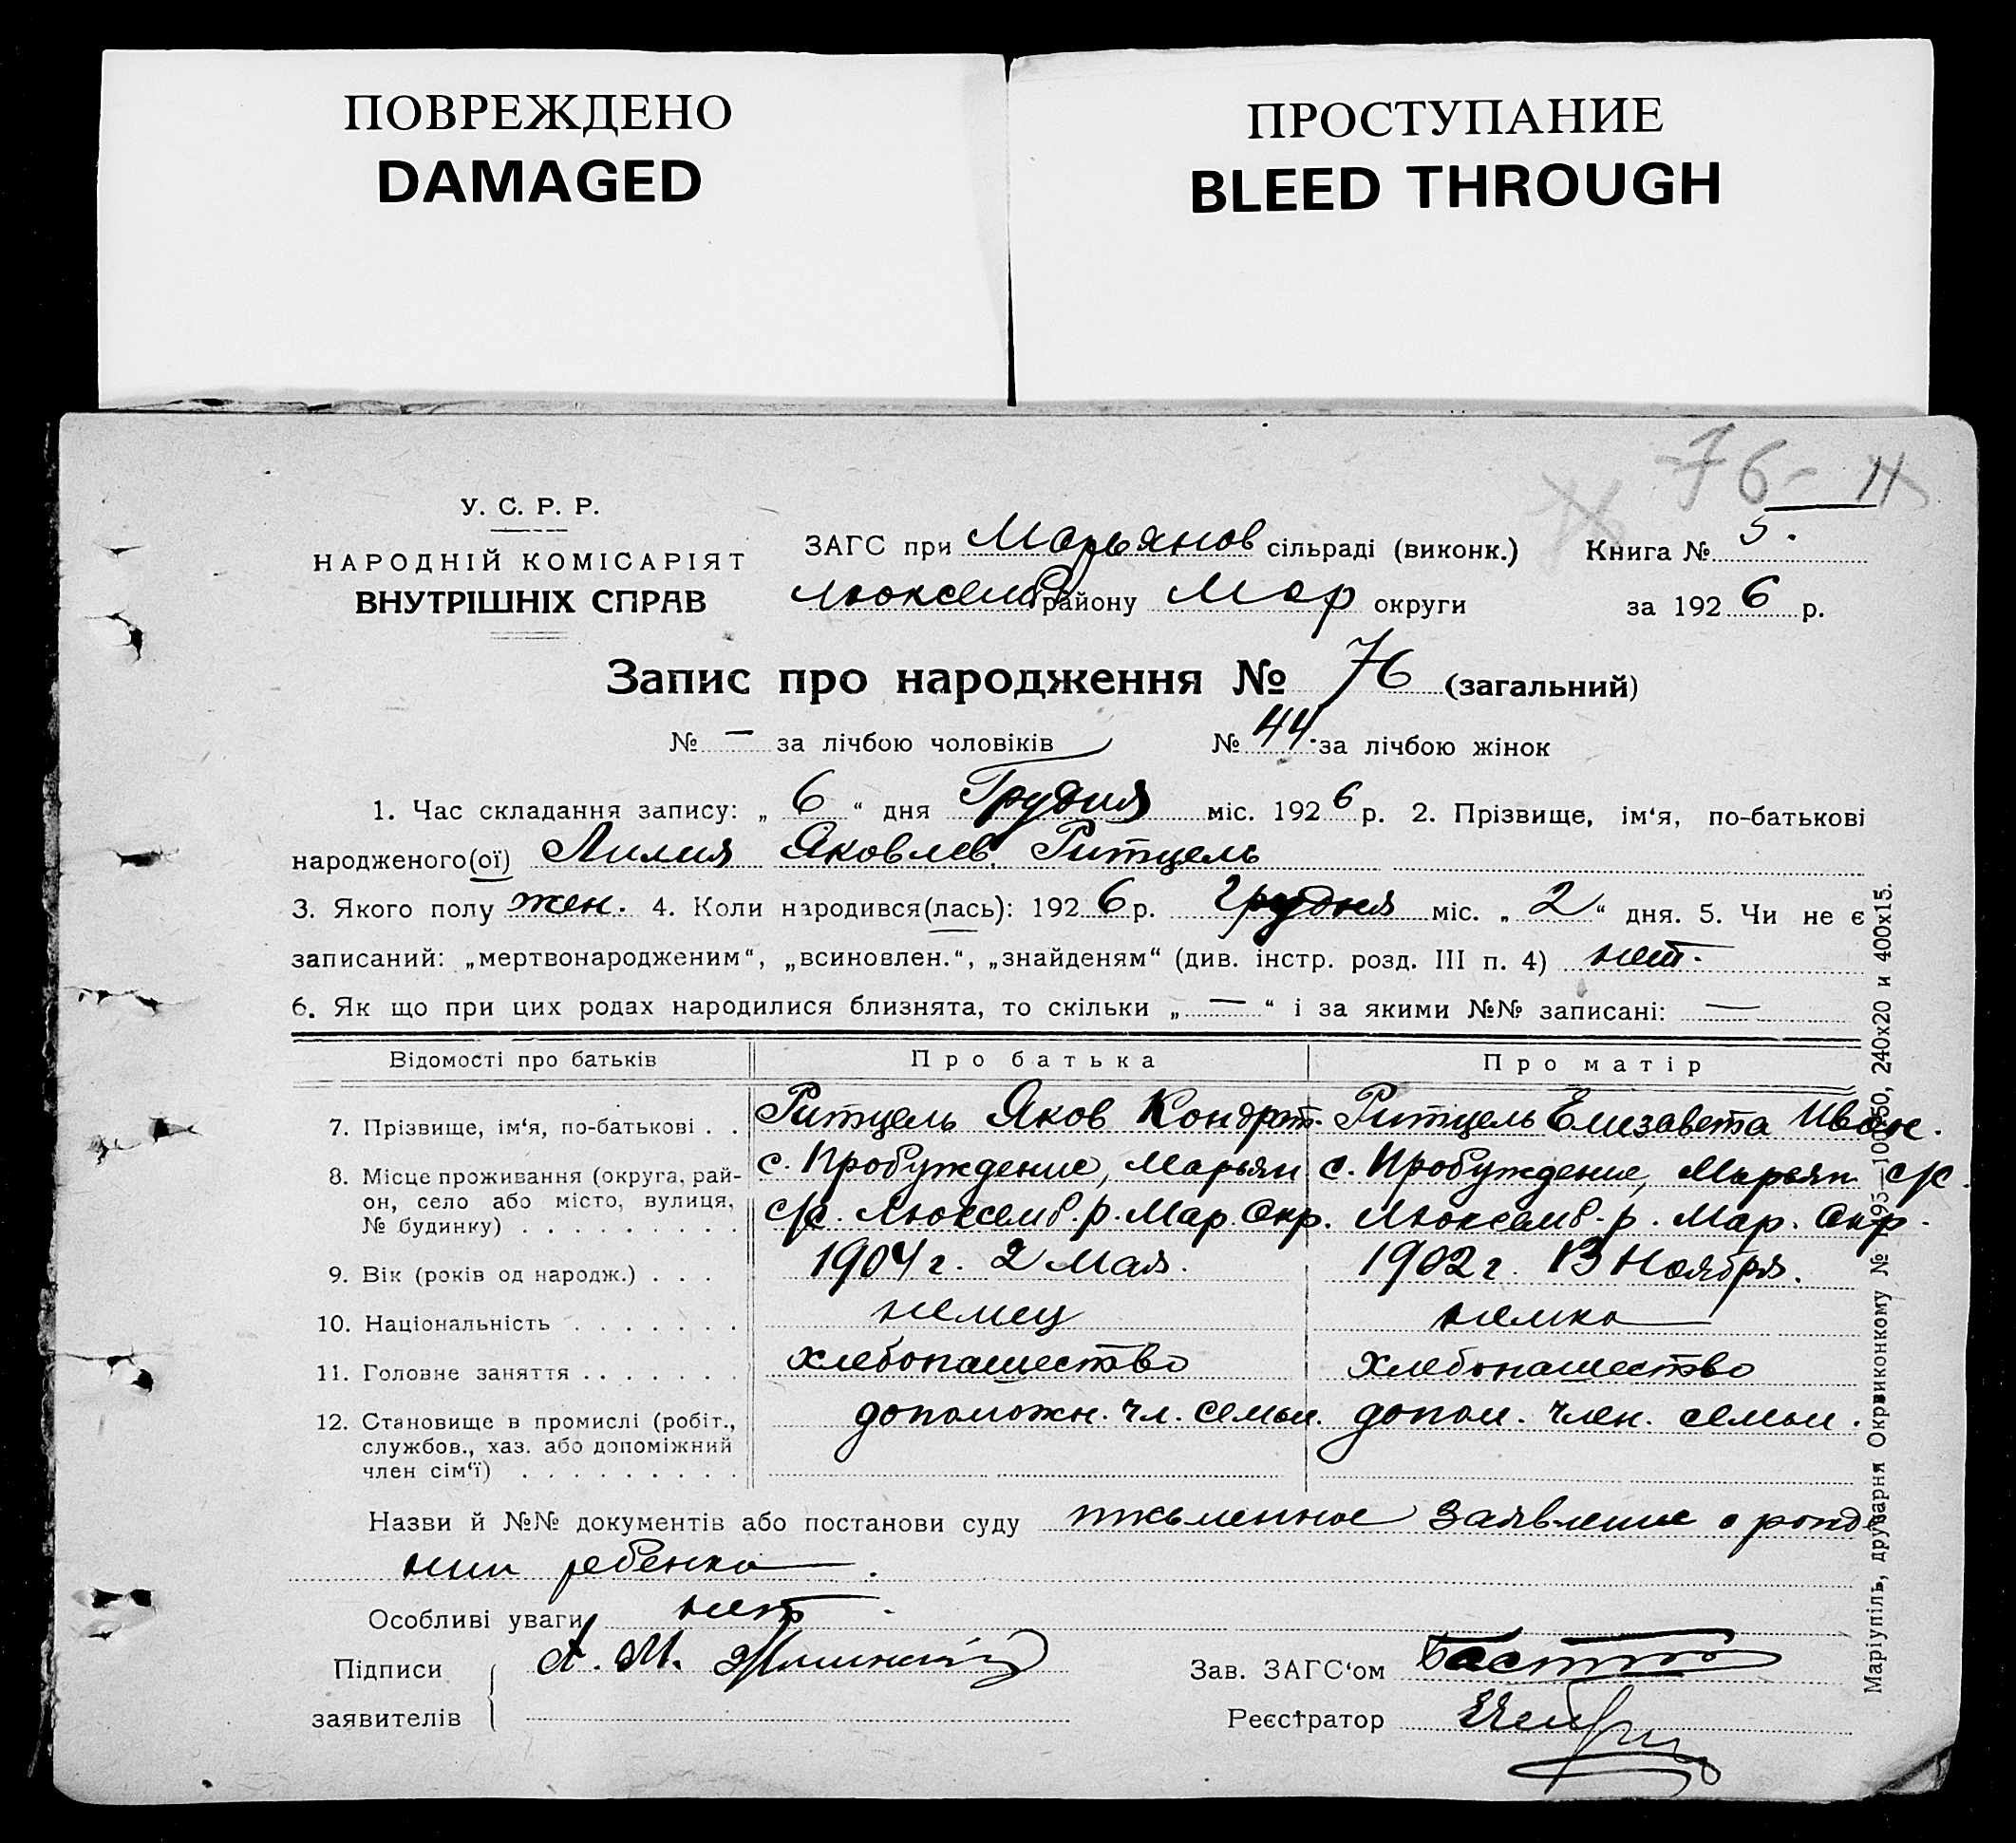 ПОВРЕЖДЕНО
DAMAGED
ПРОСТУПАНИЕ
BLEED THROUGH
76
У. С. Р. Р.
НАРОДНІЙ КОМІСАРІЯТ
ВНУТРІШНІХ СПРАВ
ЗАГС при Марьянов сільраді (виконк.) Книга № 5.
Люксемб району Мар округи за 1926 р.
Запис про народження № 76 (загальний)
№ — за лічбою чоловіків № 44. за лічбою жінок
1. Час складання запису: „ 6 “ дня Грудня міс. 1926 р. 2. Прізвище, ім‘я, по-батькові
народженого(ої) Лилия Яковлев. Ритцель
3. Якого полу жен. 4. Коли народився(лась): 1926 р. Грудня міс. „ 2 “ дня. 5. Чи не є
записаний: „мертвонародженим“, „всиновлен.“, „знайденям“ (див. інстр. розд. III п. 4) нет.
6. Як що при цих родах народилися близнята, то скільки „ — “ і за якими №№ записані: —
Відомості про батьків Про батька Про матір
7. Прізвище, ім‘я, по-батькові . . Ритцель Яков Кондрат. Ритцель Елизавета Иван.
8. Місце проживання (округа, рай- с. Пробуждение, Марьян с. Пробуждение, Марьян с/с.
он, село або місто, вулиця, с/с. Люксемб. р. Мар. Окр. Люксемб. р. Мар. Окр.
№ будинку) . . . . . . . . .
9. Вік (років од народж.) . . . 1904 г. 2 Мая. 1902 г. 13 Ноября.
10. Національність . . . . . . . немец немка
11. Головне заняття . . . . . . . хлебопашество хлебопашество
12. Становище в промислі (робіт., допоможн. чл. семьи. допом. член. семьи.
службов., хаз. або допоміжний
член сім‘ї) . . . . . . . . .
Назви й №№ документів або постанови суду письменное заявление о рожде
нии ребенка.
Особливі уваги нет.
Підписи А. М. Зав. ЗАГС‘ом
заявителів Реєстратор
Маріупіль, друкарня Окрвиконкому № 240х20 и 400х15.